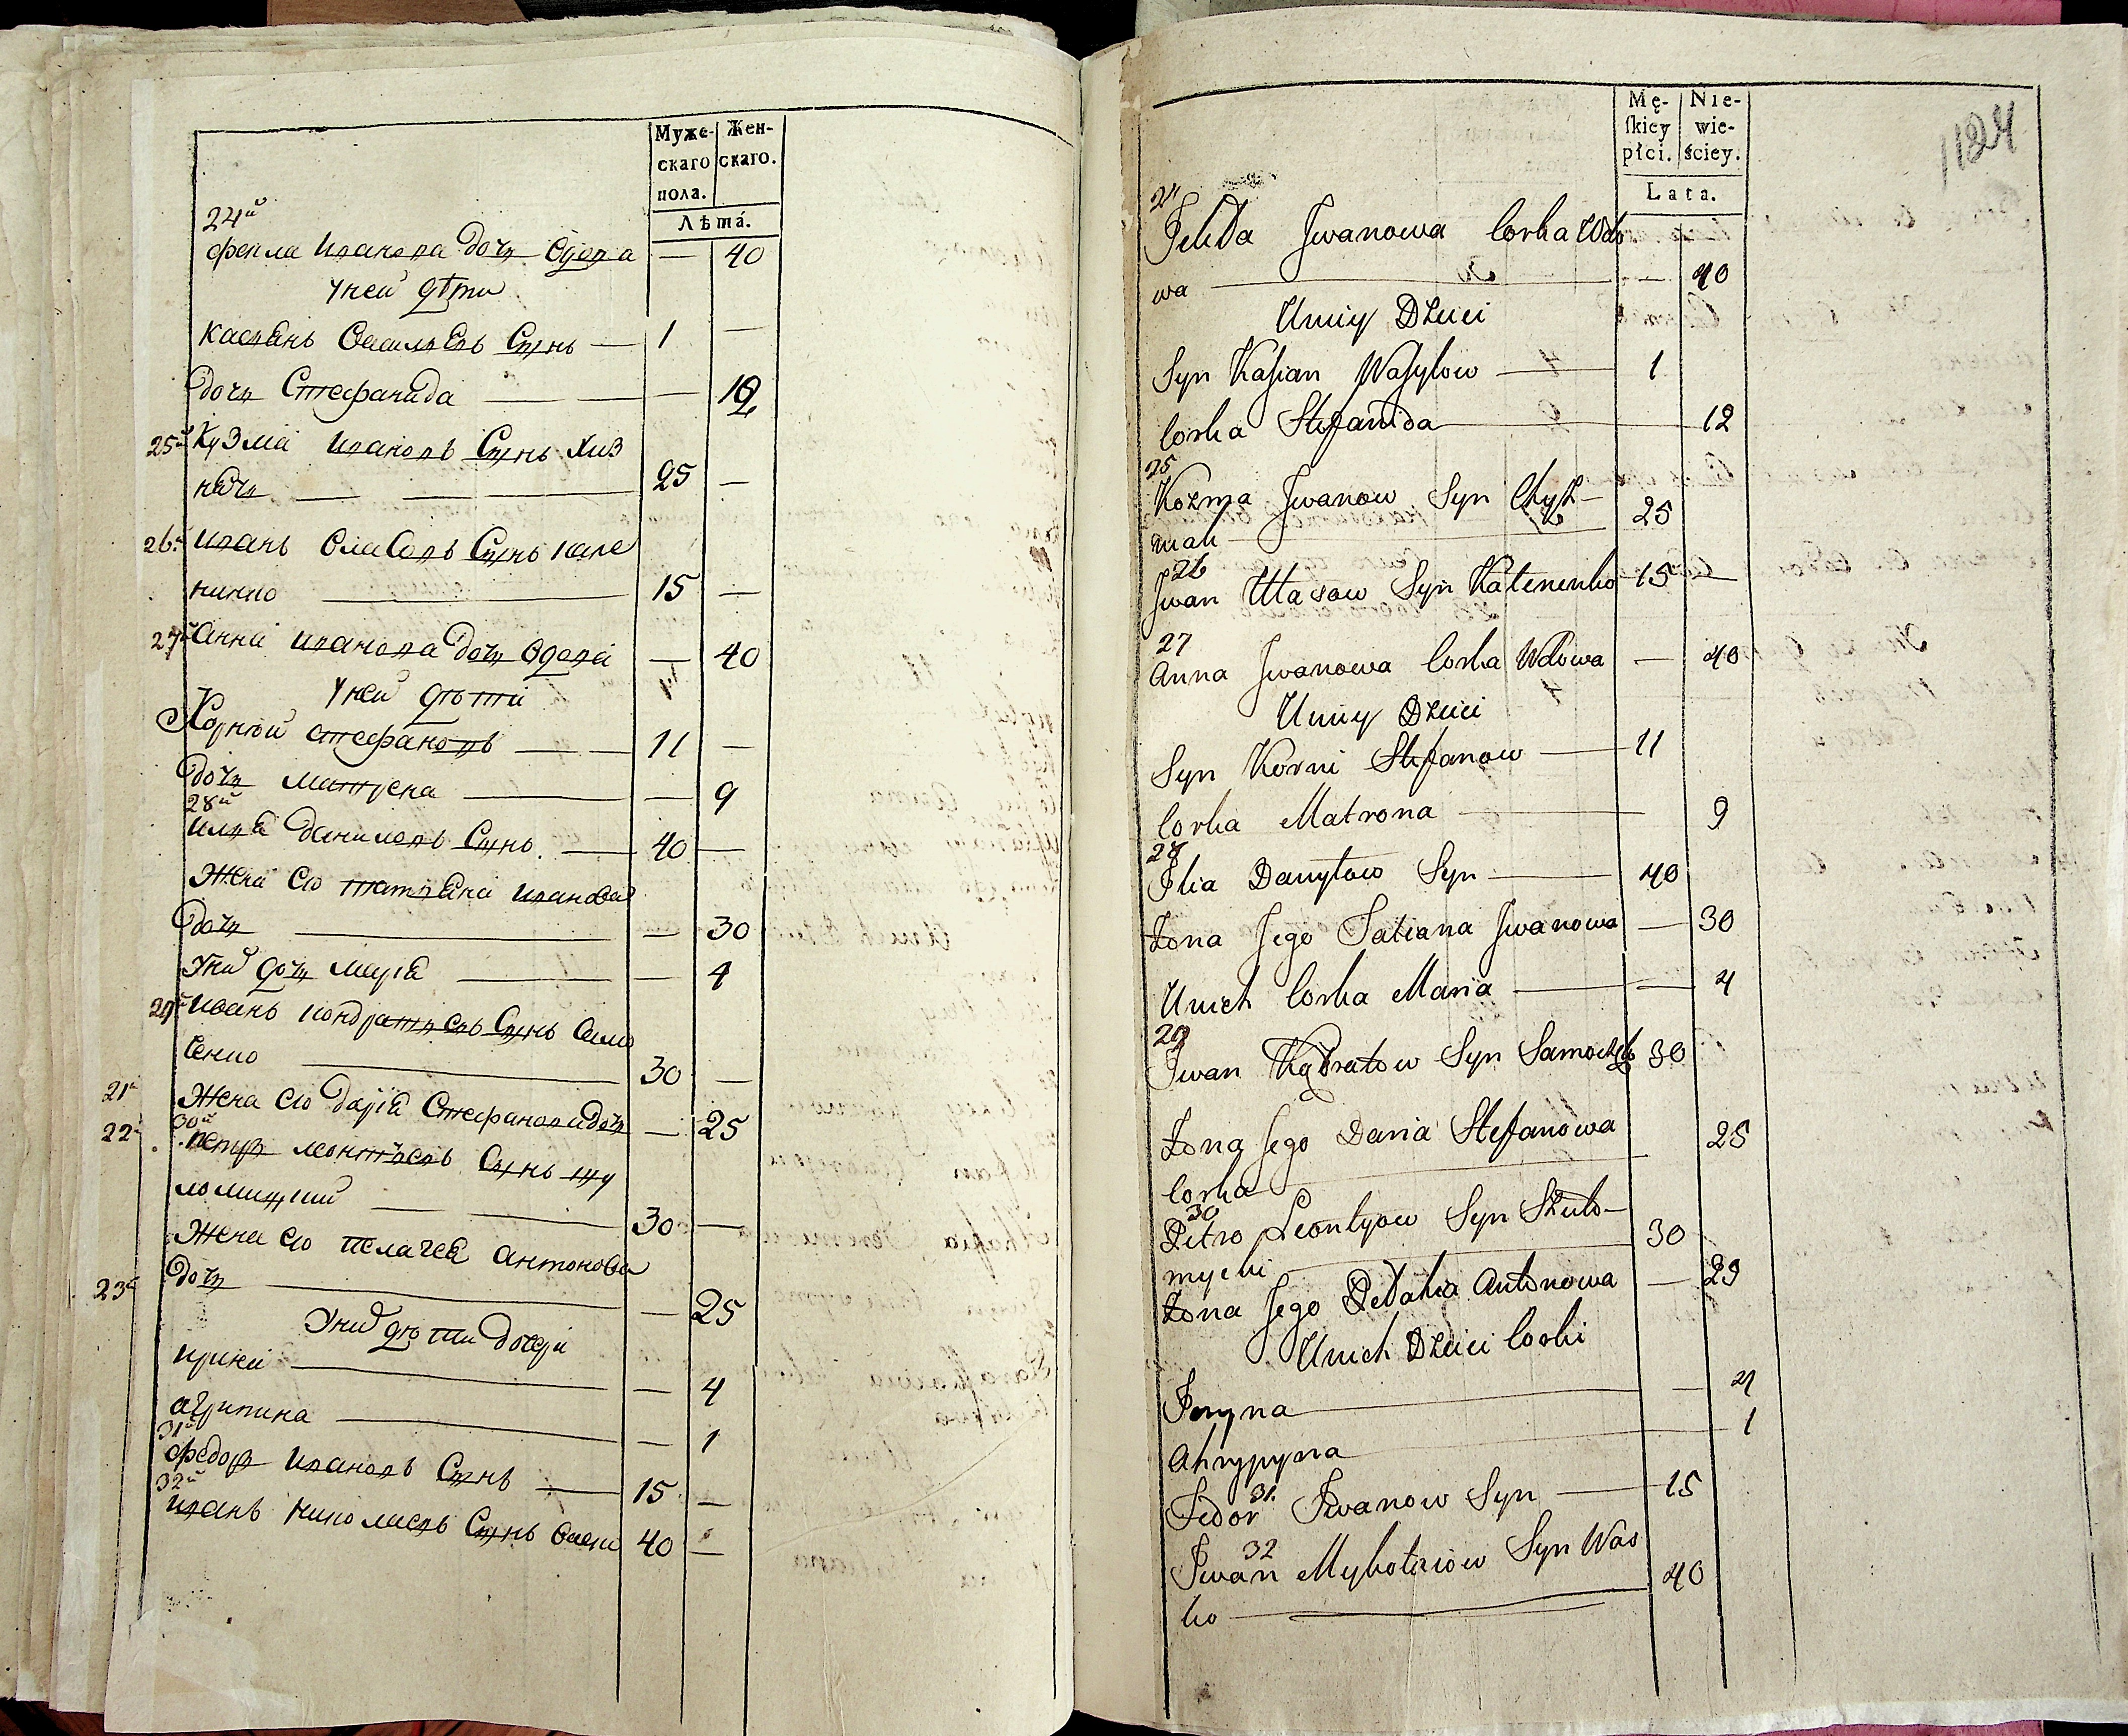 Муже-
скаго
пола.
Жен-
скаго.
Лѣта.
24й
Фекла Иванова дочь вдова — 40
У ней дѣти
Касьянъ Васильевъ Сынъ — 1 —
дочь Стефанида — — — 12
25й Кузма Ивановъ Сынъ Хиз
нячь — — — 25 —
26й Иванъ Власовъ Сынъ Кале
ненко — 15 —
27й Анна Иванова дочь вдова — 40
У ней дѣти
Корнѣй Стефановъ — — 11 —
дочь Матрена — — 9
28й
Илья Даниловъ Сынъ — 40 —
Жена его Татьяна Иванова
дочь — — 30
У них дочь Марья — — 4
29й Иванъ Кондратьевъ Сынъ Само
— 30 —
21й
Жена его Дарья Стефанова дочь — 25
22й
30й
Петръ Леонтьевъ Сынъ
— — 30 —
Жена его Пелагея Антонова
23й
дочь — — 25
У них дѣти дочери
Ирина — — 4
Агрипина — — 1
31й
Федоръ Ивановъ Сынъ — 15 —
32й
Иванъ Николаевъ Сынъ 40 —
Mę-
skiey
płci.
Nie-
wie-
ściey.
Lata.
1124
24
Fekła Jwanowa Corka Wdo
wa — — 40
U niey Dzieci
Syn Kasian Wasylow — 1
Corka Stefanida — 12
25
Kozma Jwanow Syn Chyz-
niak — 25
26
Jwan Ułasow Syn Katenenko 15 —
27
Anna Jwanowa Corka Wdowa — 40
U niey Dzieci
Syn Korni Stefanow — 11
Corka Matrona — 9
28
Ilia Danyłow Syn — 40
Żona Jego Tatiana Jwanowa — 30
U nich Corka Maria — — 4
29
Jwan Kądratow Syn 30
Żona Jego Daria Stefanowa 25
Corka —
30
Petro Leontyow Syn
— 30
Żona Jego Pełahia Antonowa — 29
U nich Dzieci Corki
Jryna — — 4
Ahrypyna — 1
31.
Fedor Jwanow Syn — 15
32
Jwan Mykołaiow Syn Was
ko — 40